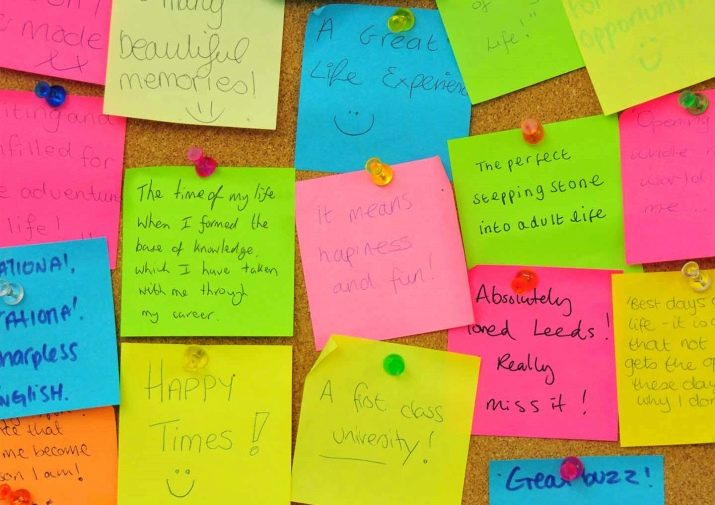 made
xx
many
beautiful
memories!
A Great
Life Experien
of
life!"
for
opportunity
iting and
filled for
e adventure
life!
The time of my life
When I formed the
base of knowledge,
which I have taken
with me through
my career.
it means
hapiness
and fun!
The perfect
stepping stone
into adult life
Opening
whole
world
me....
ATIONA!,
ATIONA!
harpless
NGLISH.
HAPPY
Times!
A first class
university!
Absolutely
loved Leeds!
Really
miss it!
'Best days
life - it is
that not
gets the op
these day
why I don
te that
me become
son I am!
Great buzz!